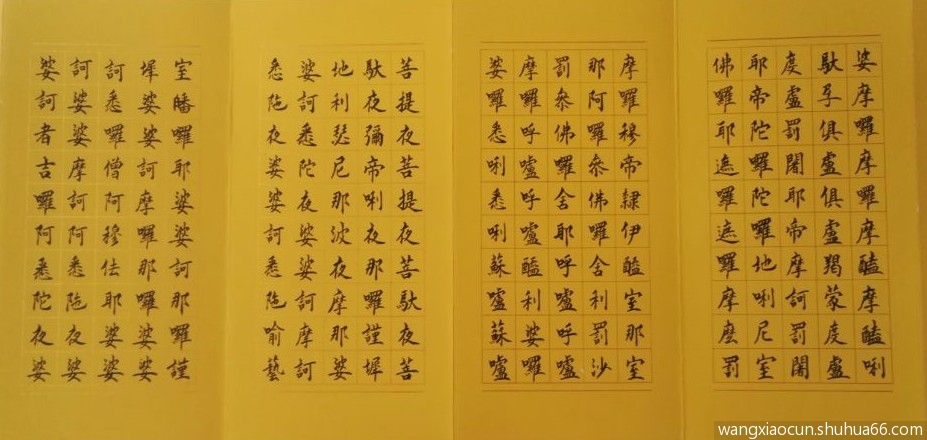 婆摩囉摩囉摩醯摩醯唎
馱孕俱盧俱盧羯蒙度盧
度盧罰闍耶帝摩訶罰闍
耶帝陀囉陀囉地唎尼室
佛囉耶遮囉遮囉摩麼罰
摩囉穆帝隸伊醯室那室
那阿囉參佛囉舍利罰沙
罰參佛囉舍耶呼嚧呼嚧
摩囉呼嚧呼嚧醯利娑囉
娑囉悉唎悉唎蘇嚧蘇嚧
菩提夜菩提夜菩馱夜菩
馱夜彌帝唎夜那囉謹墀
地利瑟尼那波夜摩那娑
婆訶悉陀夜娑婆訶摩訶
悉陀夜娑婆訶悉陀喻藝
室皤囉耶娑婆訶那囉謹
墀娑婆訶摩囉那囉娑婆
訶悉囉僧阿穆佉耶娑婆
訶娑婆摩訶阿悉陀夜娑
婆訶者吉囉阿悉陀夜娑
wangxiaocun.shuhua66.com